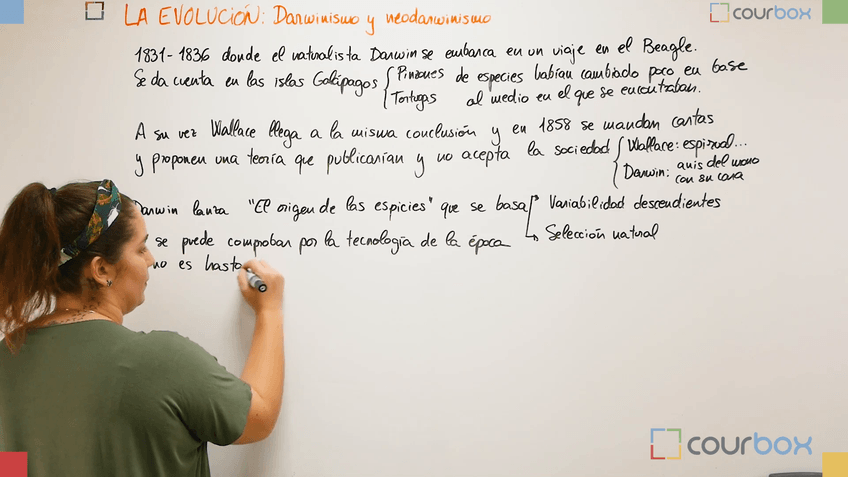 LA EVOLUCIÓN: Darwinismo y neodarwinismo
courbox
1831-1836 donde el naturalista Darwin se embarca en un viaje en el Beagle.
Se da cuenta en las islas Galápagos { Pinzones de especies habían cambiado poco en base
Tortugas al medio en el que se encontraban.
A su vez Wallace llega a la misma conclusión y en 1858 se mandan cartas
y proponen una teoría que publicarían y no acepta la sociedad { Wallace: espiritual...
Darwin: anis del mono
con su cara
Darwin lanza "El origen de las espicies" que se basa Variabilidad descendientes
Selección natural
se puede comprobar por la tecnología de la época
no es hasta
courbox